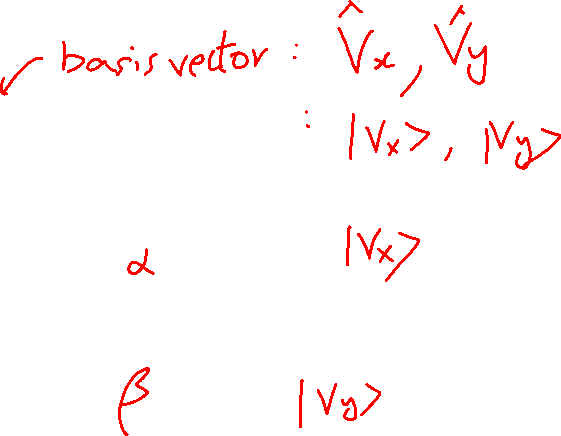 basis vector : V̂x, V̂y
: |Vx>, |Vy>
α |Vx>
β |Vy>